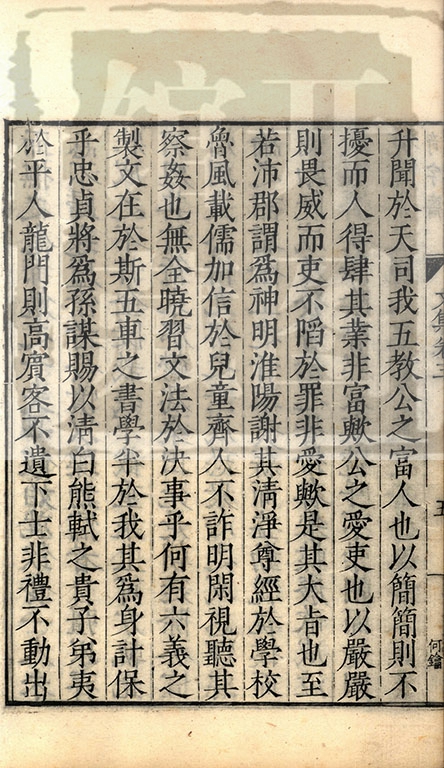 升聞於天司我五教公之富人也以簡簡則不
擾而人得肆其業非富歟公之愛吏也以嚴嚴
則畏威而吏不陷於罪非愛歟是其大旨也至
若沛郡謂為神明淮陽謝其清淨尊經於學校
魯風載儒加信於兒童齊人不詐明閑視聽其
察姦也無全曉習文法於決事乎何有六義之
製文在於斯五車之書學半於我其為身計保
乎忠貞將為孫謀賜以清白熊軾之貴子弟夷
於平人龍門則高賓客不遺下士非禮不動出
五
何鑰